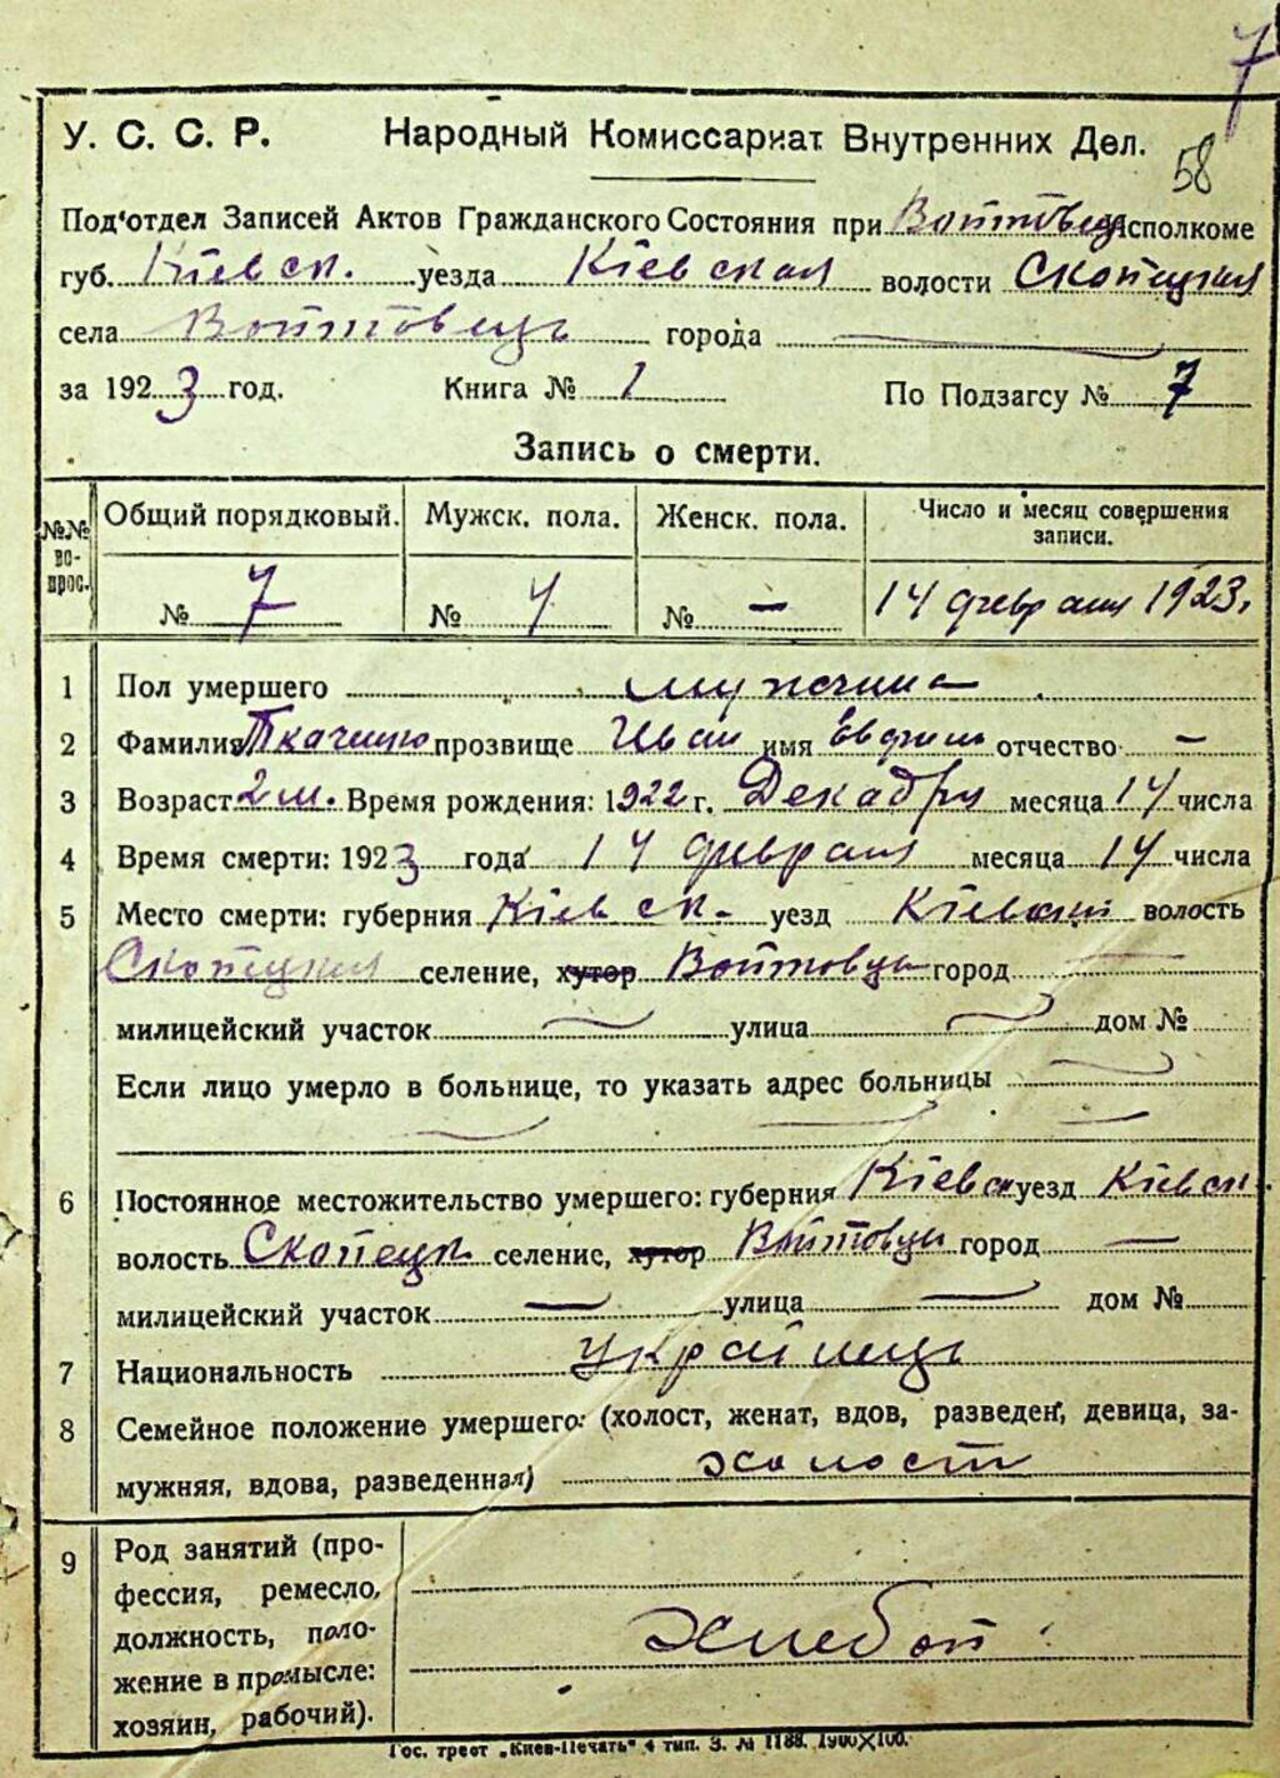 7
У. С. С. Р. Народный Комиссариат Внутренних Дел.
58
Под'отдел Записей Актов Гражданского Состояния при Войтовец Исполкоме
губ. Кіевск. уезда Кіевская волости Скопецкая
села Войтовець города —
за 1923 год. Книга № 1 По Подзагсу № 7
Запись о смерти.
№№ вопрос. Общий порядковый. Мужск. пола. Женск. пола. Число и месяц совершения записи.
№ 7 № 4 № — 14 февраля 1923.
1 Пол умершего мужчина
2 Фамилия Ткаченко прозвище Иван имя Евфим отчество —
3 Возраст 2 м. Время рождения: 1922 г. Декабря месяца 14 числа
4 Время смерти: 1923 года 14 февраля месяца 14 числа
5 Место смерти: губерния Кіевск. уезд Кіевский волость
Скопецкая селение, хутор Войтовцы город —
милицейский участок — улица — дом №
Если лицо умерло в больнице, то указать адрес больницы —
— — —
6 Постоянное местожительство умершего: губерния Кіевск уезд Кіевск.
волость Скопецк селение, хутор Войтовцы город —
милицейский участок — улица — дом №
7 Национальность Українець
8 Семейное положение умершего: (холост, женат, вдов, разведен, девица, за-
мужняя, вдова, разведенная) холост
9 Род занятий (про-
фессия, ремесло,
должность, поло-
жение в промысле:
хозяин, рабочий).
Хлебоп.
Гос. трест „Киев-Печать" 4 тип. З. № 1188. 1900X100.